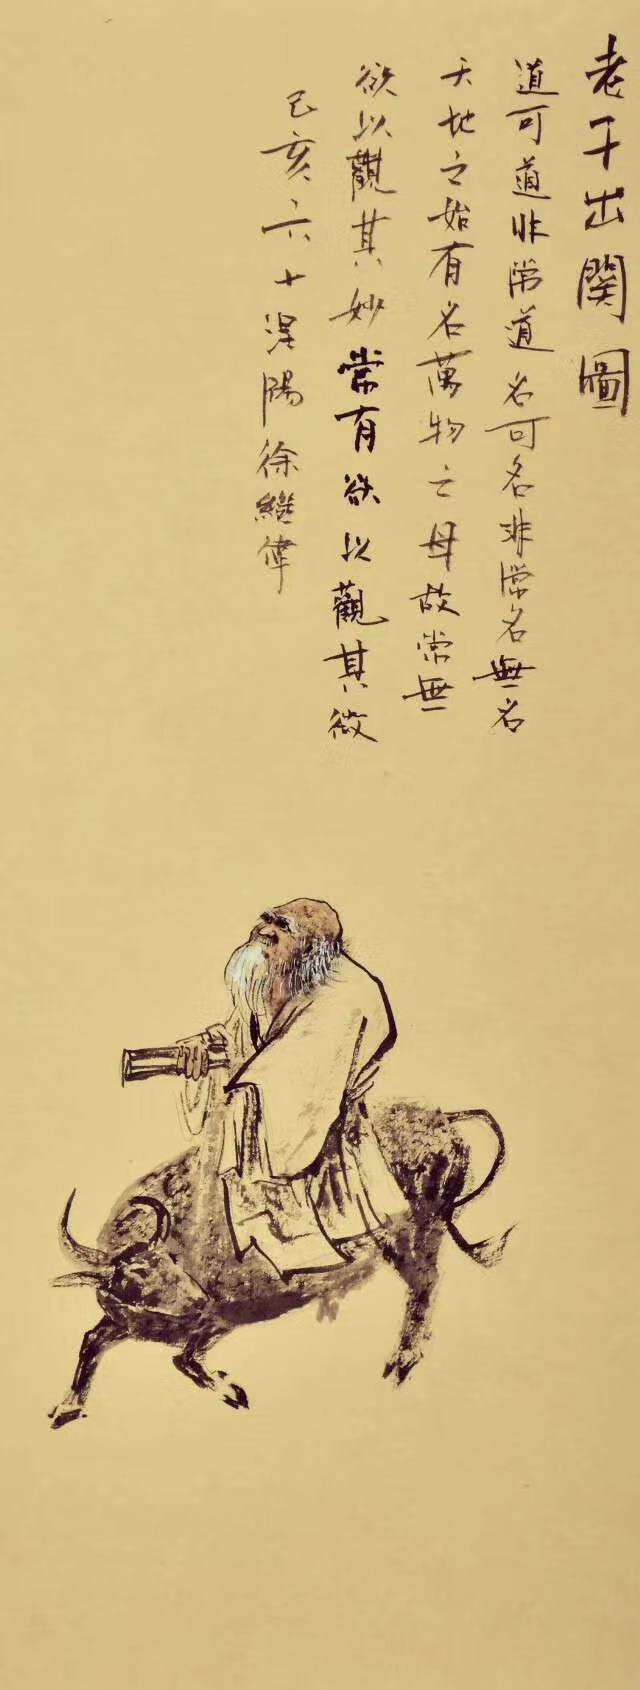 老子出関圖
道可道非常道名可名非常名無名
天地之始有名萬物之母故常無
欲以觀其妙常有欲以觀其徼
己亥六十涅陽徐繼偉